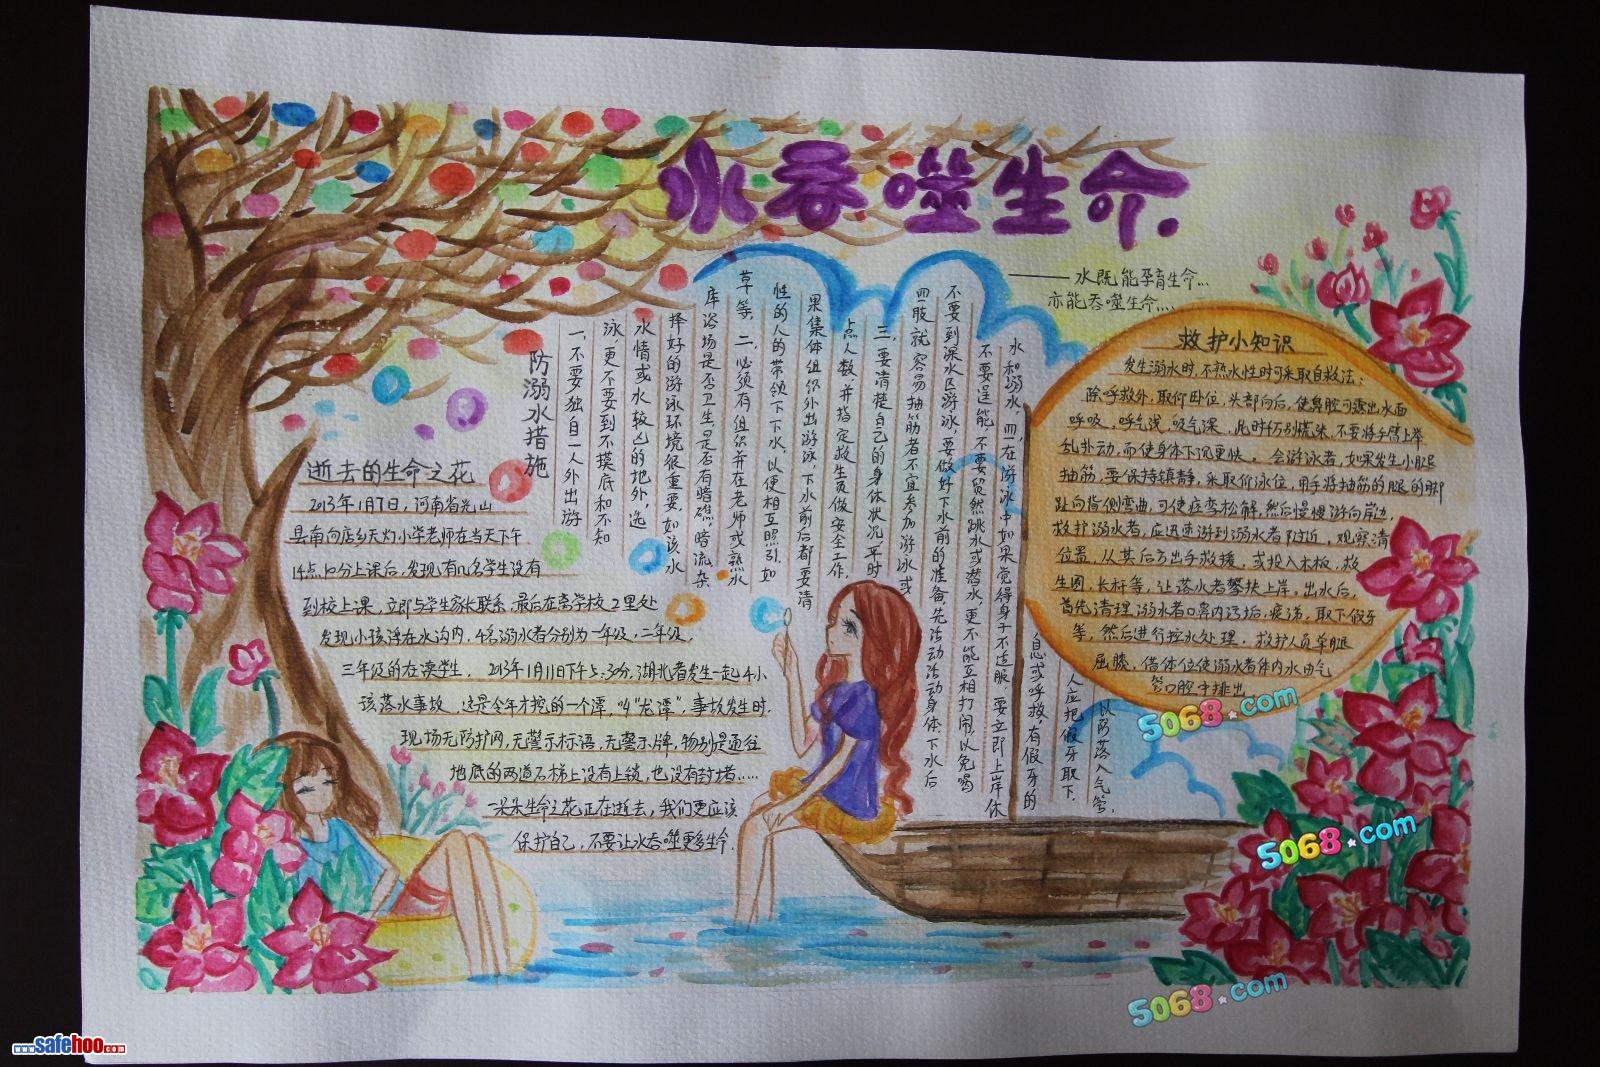 水吞噬生命.
——水既能孕育生命...
亦能吞噬生命....
防溺水措施
一、不要独自一人外出游
泳,更不要到不摸底和不知
水情或水较凶的地外,选
择好的游泳环境很重要,如该水
库浴场是否卫生,是否有暗礁,暗流,杂
草等。二、必须有组织并在老师或熟水
性的人的带领下下水,以便相互照引,如
果集体组织外出游泳,下水前后都要清
点人数,并指定救生员做安全工作.
三、要清楚自己的身体状况,平时
四肢就容易抽筋者不宜参加游泳或
不要到深水区游泳,要做好下水前的准备,先活动活动身体,下水后
不要逞能,不要贸然跳水或潜水,更不能互相打闹,以免喝
水和溺水,四、在游泳中如果觉得身子不适服,要立即上岸休
息或呼救,有假牙的
人应把假牙取下,
以防落入气管.
逝去的生命之花
2013年1月7日,河南省光山
县南向店乡天灯小学老师在当天下午
14点10分上课后,发现有几名学生没有
到校上课,立即与学生家长联系,最后在离学校2里处
发现小孩浮在水沟内,4名溺水者分别为一年级,二年级,
三年级的在读学生. 2013年1月11日下午5:30分,湖北省发生一起4小
孩落水事故,这是今年才挖的一个潭,叫“龙潭”,事故发生时.
现场无防护网,无警示标语,无警示牌,特别是通往
地底的两道石梯上没有上锁,也没有封堵.....
一朵朵生命之花正在逝去,我们更应该
保护自己,不要让水吞噬更多生命.
救护小知识
发生溺水时,不熟水性时可采取自救法:
除呼救外,取仰卧位,头部向后,使鼻腔可露出水面
呼吸,呼气浅,吸气深,此时千万别慌张,不要将手臂上举
乱扑动,而使身体下沉更快。会游泳者,如果发生小腿
抽筋,要保持镇静,采取仰泳位,用手将抽筋的腿的脚
趾向背侧弯曲,可使痉挛松解,然后慢慢游向岸边,
救护溺水者,应迅速游到溺水者附近,观察清
位置,从其后方出手救援,或投入木板,救
生圈,长杆等,让落水者攀扶上岸。出水后,
首先清理溺水者口鼻内污垢,痰涕,取下假牙
等,然后进行控水处理,救护人员单腿
屈膝,借体位使溺水者体内水由气
管口腔中排出
5068.com
5068.com
5068.com
www.safehoo.com